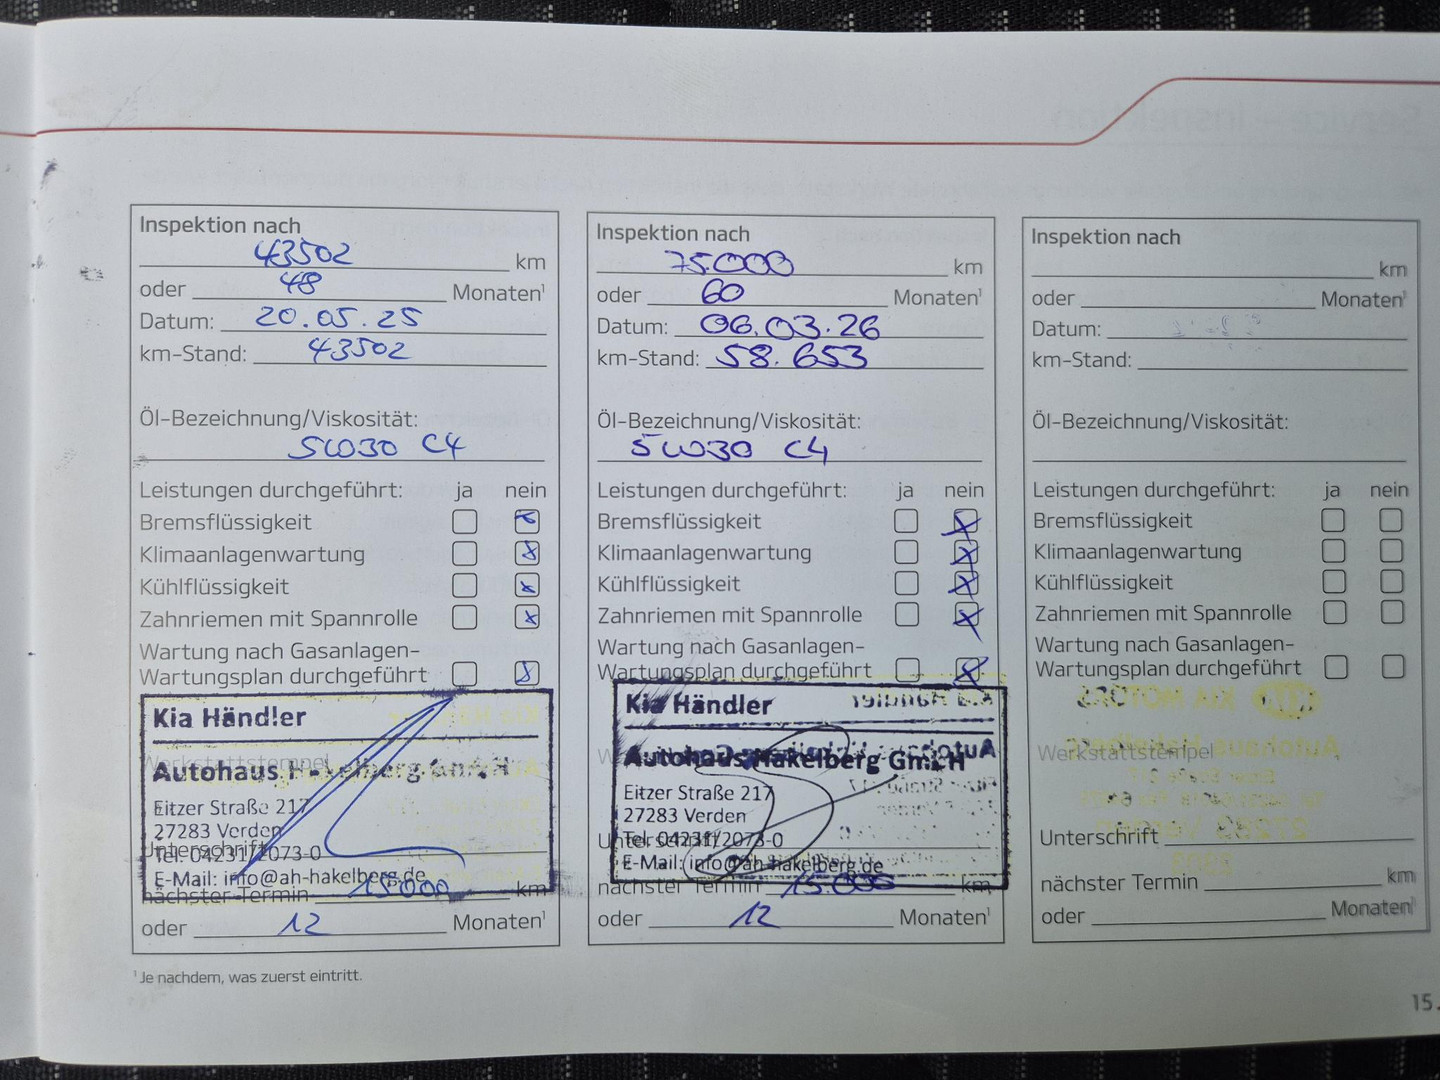 Inspektion nach
43502 km
oder 48 Monaten¹
Datum: 20.05.25
km-Stand: 43502
Öl-Bezeichnung/Viskosität:
5W30 C4
Leistungen durchgeführt: ja nein
Bremsflüssigkeit
Klimaanlagenwartung
Kühlflüssigkeit
Zahnriemen mit Spannrolle
Wartung nach Gasanlagen-
Wartungsplan durchgeführt
Kia Händler
Werkstattstempel
Autohaus Hakelberg GmbH
Eitzer Straße 217
27283 Verden
Unterschrift
Tel. 04231/2073-0
E-Mail: info@ah-hakelberg.de
nächster Termin 15000 km
oder 12 Monaten¹
¹ Je nachdem, was zuerst eintritt.
Inspektion nach
75.000 km
oder 60 Monaten¹
Datum: 06.03.26
km-Stand: 58.653
Öl-Bezeichnung/Viskosität:
5W30 C4
Leistungen durchgeführt: ja nein
Bremsflüssigkeit
Klimaanlagenwartung
Kühlflüssigkeit
Zahnriemen mit Spannrolle
Wartung nach Gasanlagen-
Wartungsplan durchgeführt
Kia Händler
Autohaus Hakelberg GmbH
Eitzer Straße 217
27283 Verden
Unterschrift
Tel. 04231/2073-0
E-Mail: info@ah-hakelberg.de
nächster Termin 15.000 km
oder 12 Monaten¹
Inspektion nach
km
oder Monaten¹
Datum:
km-Stand:
Öl-Bezeichnung/Viskosität:
Leistungen durchgeführt: ja nein
Bremsflüssigkeit
Klimaanlagenwartung
Kühlflüssigkeit
Zahnriemen mit Spannrolle
Wartung nach Gasanlagen-
Wartungsplan durchgeführt
Werkstattstempel
Unterschrift
nächster Termin km
oder Monaten¹